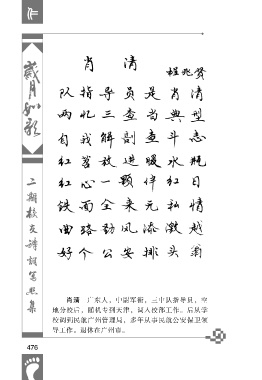 肖清
程兆贤
队指导员是肖清
两忆三查当典型
自我解剖查斗志
红 放进暖水瓶
红心一颗伴红日
铁面全来元私情
曲路劲风添激越
好个公安排头翁
岁月如歌
二期校友诗词
集
肖清 广东人，中尉军衔，三中队指导员，空
地分校后，随机专到天津，调入校部工作。后从学
校调到民航广州管理局，多年从事民航公安保卫领
导工作。退休在广州市。
476